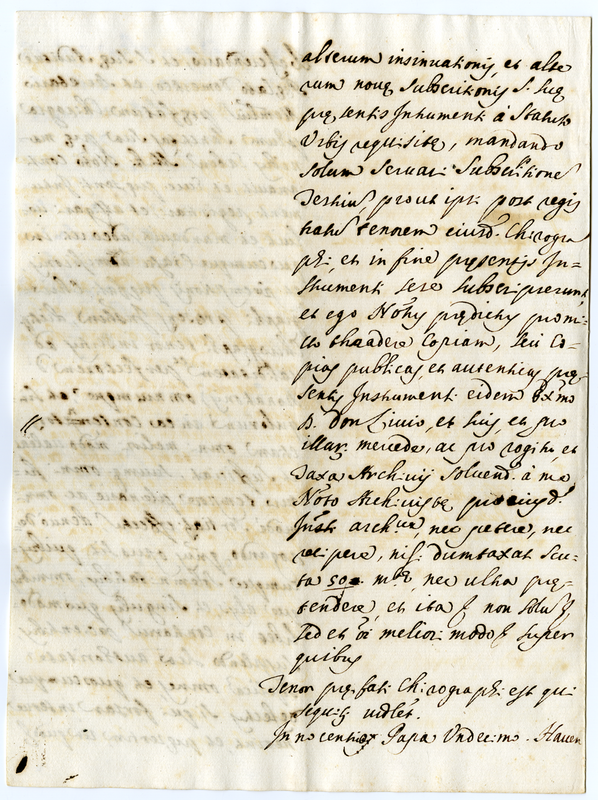 alterum insinuationis, et alte
rum novę subscritionis s. huę
pręsentis Instrumenti à Statuto
Urbis requisitę, mandando
solum servari subscritiones
Testium prout ipsi post regis
tratum tenorem eiusd. Chirogra
phi, et in fine pręsentis In=
strumenti sese subscripserunt,
et ego Notus prędictus promi=
tto tradere Copiam, seu Co=
pias publicas, et autenticas prę
sentis Instrumenti eidem Exmo
D. Don Livio, et suis et pro
illar. mercede, ac pro rogitu, et
Taxa Archivij solvend. à me
Noto Archivistę pro eiusd.
Insti arch.ne, nec petere, nec
recipere, nisi dumtaxat scu=
ta 50 mtę, nec ultra prę=
tendere, et ita non solum
sed et oi meliori modo super
quibus
Tenor pręfati Chirographi est qui
sequitr videlt.
Innocentius Papa Undecimo. Haven